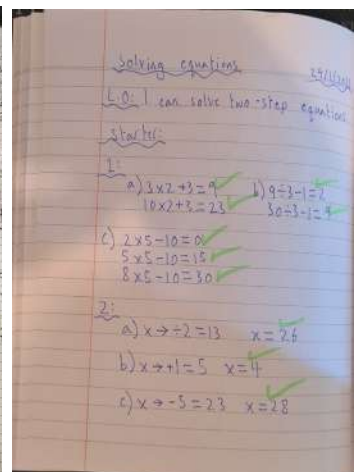 Solving equations
L.O: I can solve two-step equations
Starter:
1:
a) 3x2+3=9 b) 9÷3-1=2
10x2+3=23 30÷3-1=9
c) 2x5-10=0
5x5-10=15
8x5-10=30
2:
a) x→÷2=13 x=26
b) x→+1=5 x=4
c) x→-5=23 x=28